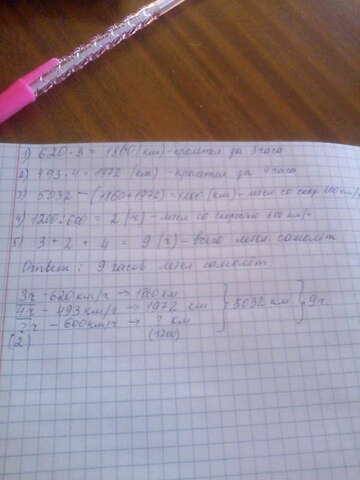 1) 620 · 3 = 1860 (км) - пролетел за 3 часа
2) 493 · 4 = 1972 (км) - пролетел за 4 часа
3) 5032 - (1860+1972) = 1200 (км) - летел со скор. 600 км/ч
4) 1200 : 600 = 2 (ч) - летел со скоростью 600 км/ч
5) 3 + 2 + 4 = 9 (ч) - всего летел самолёт
Ответ: 9 часов летел самолёт.
3ч - 620 км/ч → 1860 км
4ч - 493 км/ч → 1972 км } 5032 км } 9ч
?ч - 600 км/ч → ? км
(2) (1200)